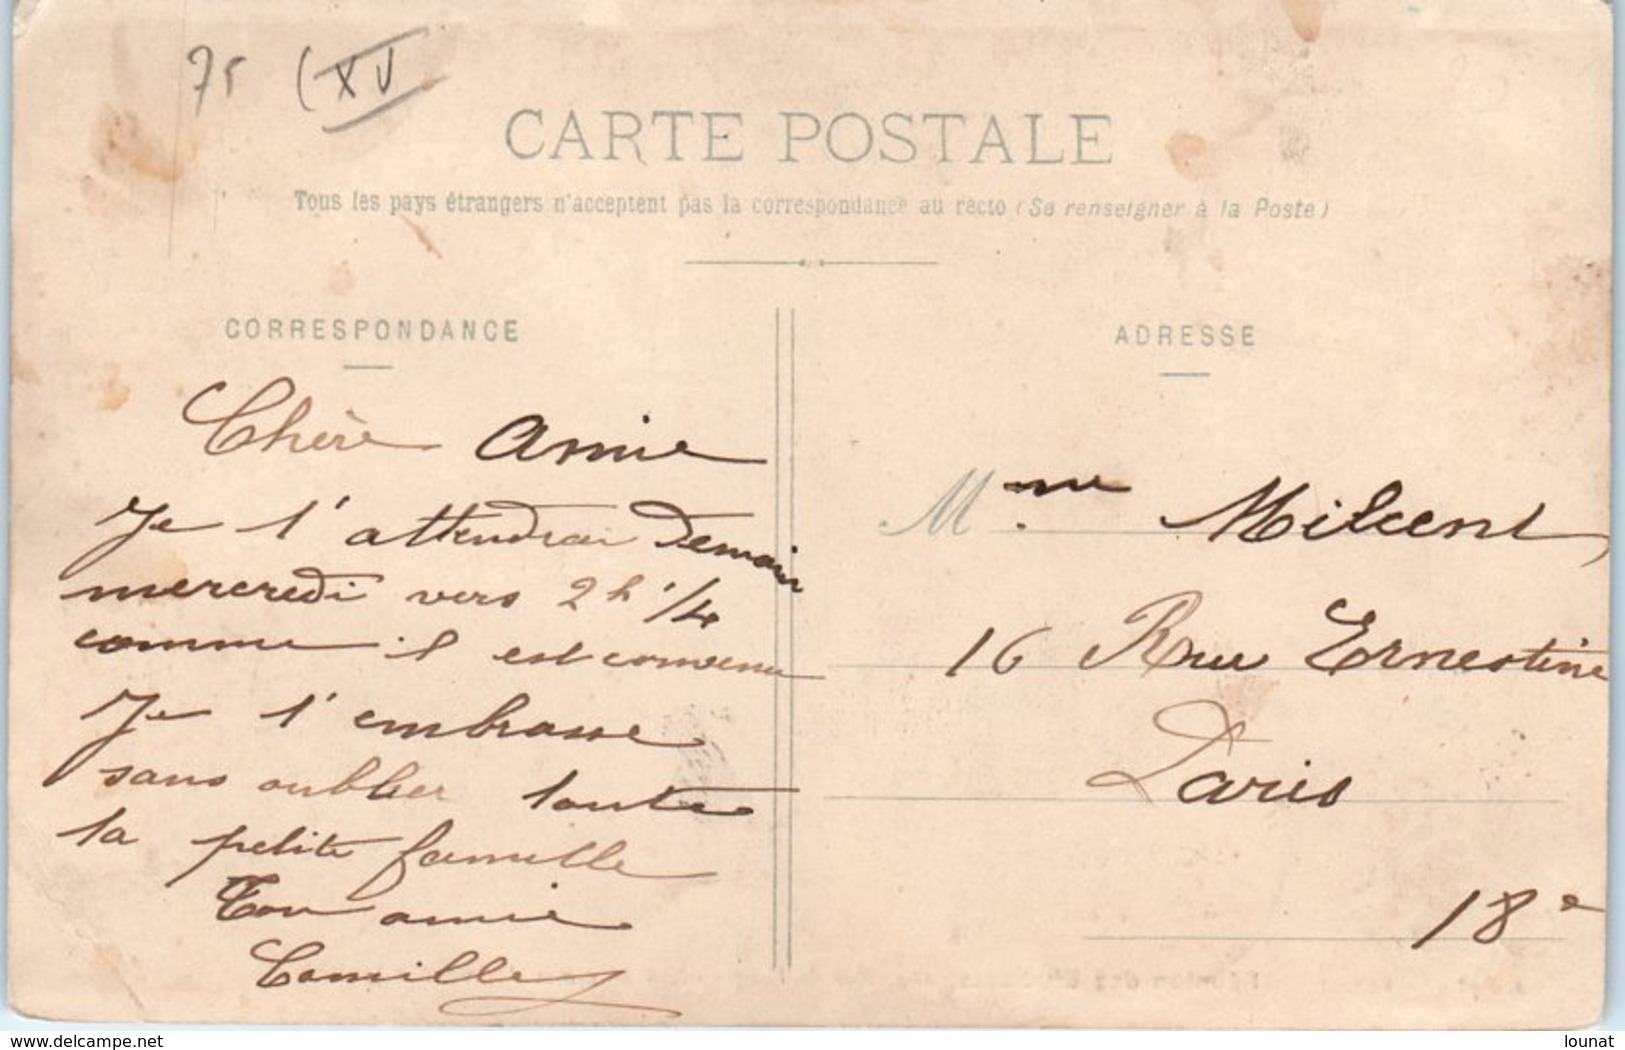 75 (XV
CARTE POSTALE
Tous les pays étrangers n'acceptent pas la correspondance au recto (Se renseigner à la Poste)
CORRESPONDANCE
Chère amie
Je t'attendrai Demain
mercredi vers 2 h 1/4
comme il est convenu
Je t'embrasse
sans oublier toute
la petite famille
Ton amie
Camille
ADRESSE
Mme Milcent
16 Rue Ernestine
Paris
18e
www.delcampe.net
lounat